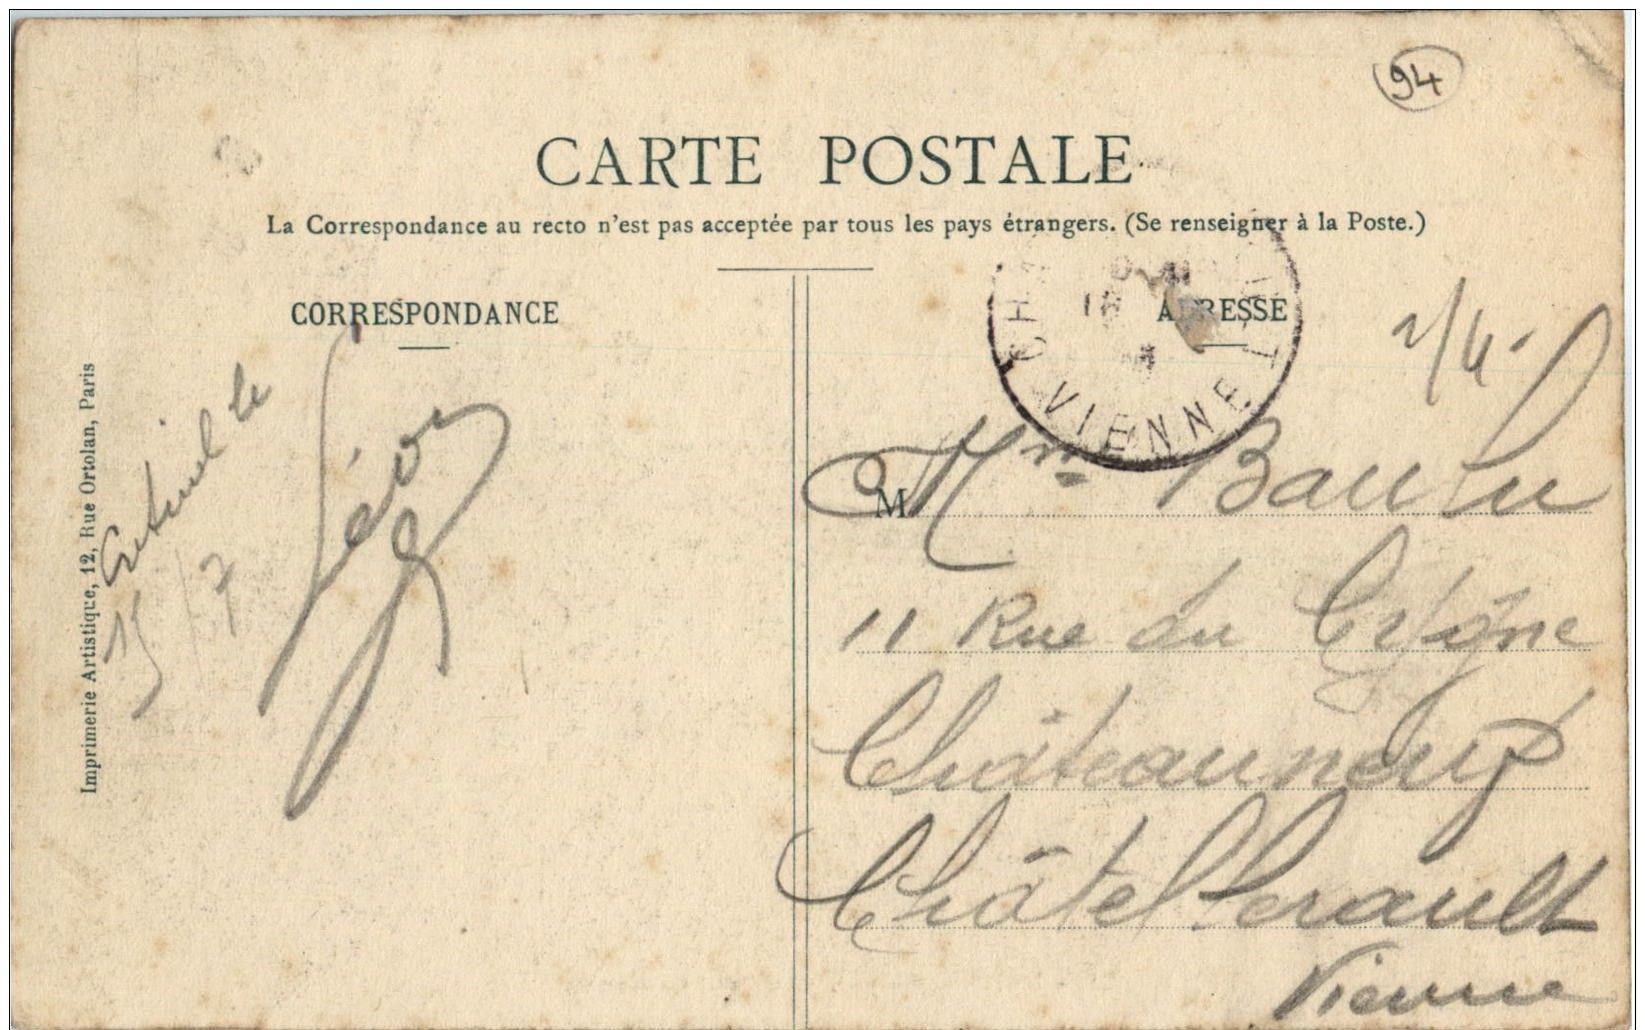 94
CARTE POSTALE
La Correspondance au recto n'est pas acceptée par tous les pays étrangers. (Se renseigner à la Poste.)
CORRESPONDANCE
ADRESSE
Imprimerie Artistique, 12, Rue Ortolan, Paris
Creteil le
15/7
Léon
VIENNE
2/4
M
Mme
11 Rue du Cygne
Châteauneuf
Châtellerault
Vienne